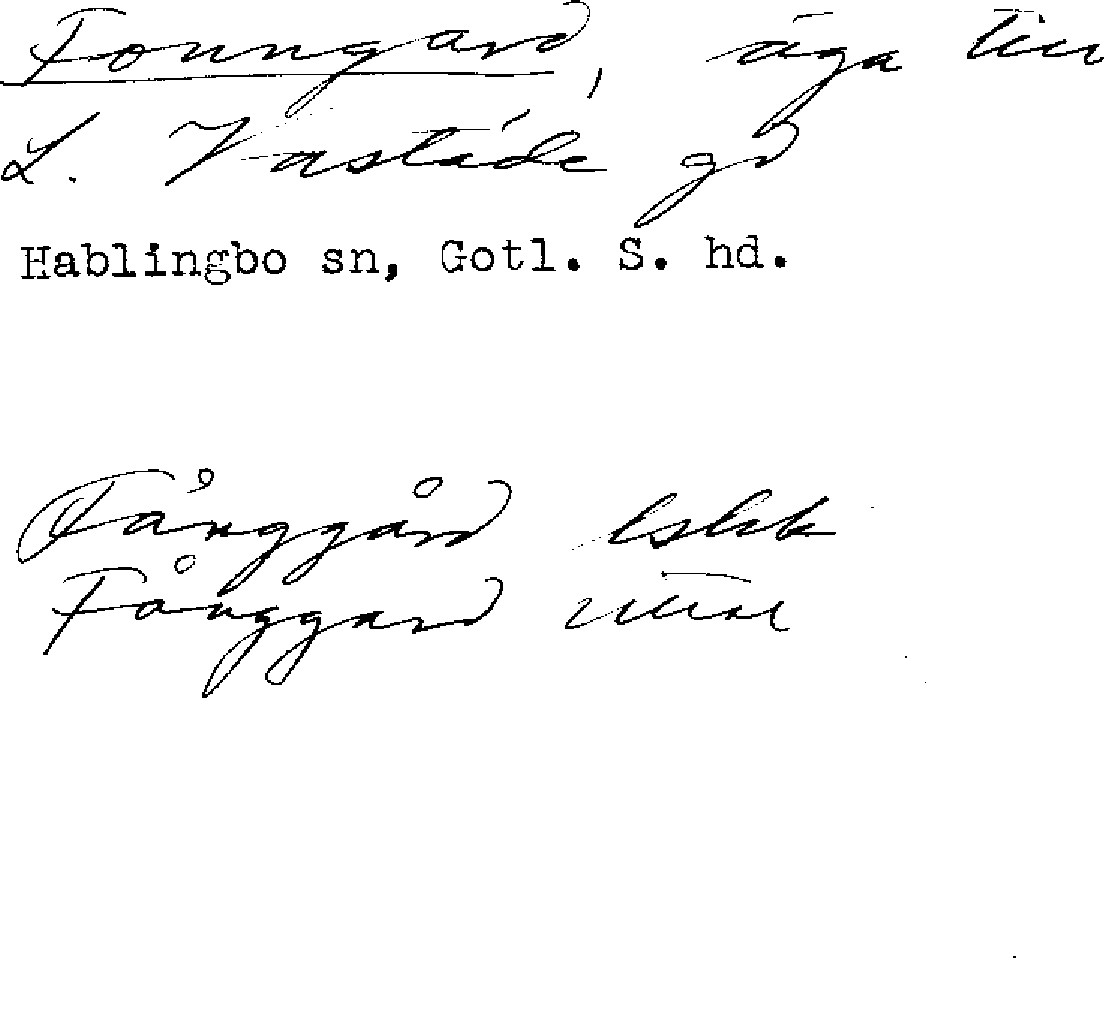 Fonngard, äga till
L. Västäde gd
Hablingbo sn, Gotl. S. hd.
Fånggård lskk
Fånggard uttal